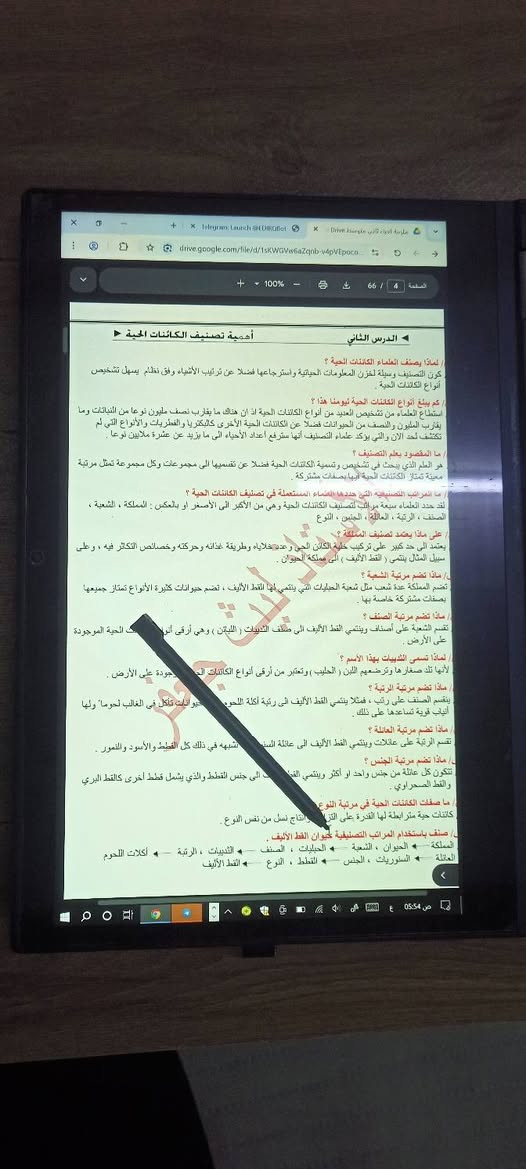 Telegram: Launch @EDIRQBot
ملزمة احياء ثاني متوسط - Drive
drive.google.com/file/d/1sKWGVw6aZqnb-v4pVEpoco...
الصفحة 4 / 66
100%
◄ الدرس الثاني
أهمية تصنيف الكائنات الحية ►
/ لماذا يصنف العلماء الكائنات الحية ؟
كون التصنيف وسيلة لخزن المعلومات الحياتية واسترجاعها فضلا عن ترتيب الأشياء وفق نظام يسهل تشخيص
أنواع الكائنات الحية .
/ كم يبلغ أنواع الكائنات الحية ليومنا هذا ؟
استطاع العلماء من تشخيص العديد من أنواع الكائنات الحية اذ ان هناك ما يقارب نصف مليون نوعا من النباتات وما
يقارب المليون والنصف من الحيوانات فضلا عن الكائنات الحية الأخرى كالبكتريا والفطريات والأنواع التي لم
تكتشف لحد الان والتي يؤكد علماء التصنيف أنها سترفع أعداد الأحياء الى ما يزيد عن عشرة ملايين نوعا .
/ ما المقصود بعلم التصنيف ؟
هو العلم الذي يبحث في تشخيص وتسمية الكائنات الحية فضلا عن تقسيمها الى مجموعات وكل مجموعة تمثل مرتبة
معينة تمتاز الكائنات الحية فيها بصفات مشتركة .
/ ما المراتب التصنيفية التي حددها العلماء المستعملة في تصنيف الكائنات الحية ؟
لقد حدد العلماء سبعة مراتب لتصنيف الكائنات الحية وهي من الأكبر الى الأصغر أو بالعكس : المملكة ، الشعبة ،
الصنف ، الرتبة ، العائلة ، الجنس ، النوع
/ على ماذا يعتمد تصنيف المملكة ؟
يعتمد الى حد كبير على تركيب خلية الكائن الحي وعدد خلاياه وطريقة غذائه وحركته وخصائص التكاثر فيه ، وعلى
سبيل المثال ينتمي ( القط الأليف ) الى مملكة الحيوان .
/ ماذا تضم مرتبة الشعبة ؟
تضم المملكة عدة شعب مثل شعبة الحبليات التي ينتمي لها القط الأليف ، تضم حيوانات كثيرة الأنواع تمتاز جميعها
بصفات مشتركة خاصة بها .
/ ماذا تضم مرتبة الصنف ؟
تقسم الشعبة على أصناف وينتمي القط الأليف الى صنف الثدييات ( اللبائن ) وهي أرقى الحية الموجودة
على الأرض .
/ لماذا تسمى الثدييات بهذا الأسم ؟
لأنها تلد صغارها وترضعهم اللبن ( الحليب ) وتعتبر من أرقى أنواع الكائنات على الأرض .
/ ماذا تضم مرتبة الرتبة ؟
ينقسم الصنف على رتب ، فمثلا ينتمي القط الأليف الى رتبة أكلة تأكل في الغالب لحوما ولها
أنياب قوية تساعدها على ذلك .
/ ماذا تضم مرتبة العائلة ؟
تقسم الرتبة على عائلات وينتمي القط الأليف الى عائلة تشبهه في ذلك كل القطط والأسود والنمور .
/ ماذا تضم مرتبة الجنس ؟
تتكون كل عائلة من جنس واحد أو أكثر وينتمي الى جنس القطط والذي يشمل قطط أخرى كالقط البري
والقط الصحراوي .
/ ما صفات الكائنات الحية في مرتبة النوع
كائنات حية مترابطة لها القدرة على وانتاج نسل من نفس النوع .
/ صنف باستخدام المراتب التصنيفية حيوان القط الأليف .
المملكة ← الحيوان ، الشعبة ← الحبليات ، الصنف ← الثدييات ، الرتبة ← أكلات اللحوم
العائلة ← السنوريات ، الجنس ← القطط ، النوع ← القط الأليف
الأستاذ ليث جعفر
05:54 ص